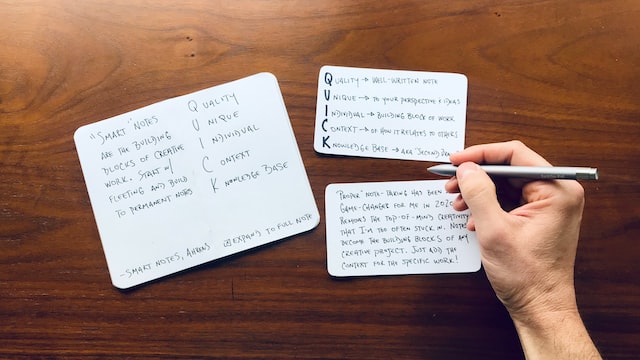 "SMART" NOTES
ARE THE BUILDING
BLOCKS OF CREATIVE
WORK. START W/
FLEETING AND BUILD
TO PERMANENT NOTES
QUALITY
UNIQUE
INDIVIDUAL
CONTEXT
KNOWLEDGE BASE
-SMART NOTES, AHRENS
EXPAND TO FULL NOTE
QUALITY → WELL-WRITTEN NOTE
UNIQUE → TO YOUR PERSPECTIVE & IDEAS
INDIVIDUAL → BUILDING BLOCK OF WORK
CONTEXT → OF HOW IT RELATES TO OTHERS
KNOWLEDGE BASE → AKA "SECOND
PROPER NOTE-TAKING HAS BEEN
GAME-CHANGER FOR ME IN 202
REMOVES THE TOP-OF-MIND CREATIVITY
THAT I'M TOO OFTEN STUCK IN. NOTES
BECOME THE BUILDING BLOCKS OF ANY
CREATIVE PROJECT. JUST ADD THE
CONTEXT FOR THE SPECIFIC WORK!